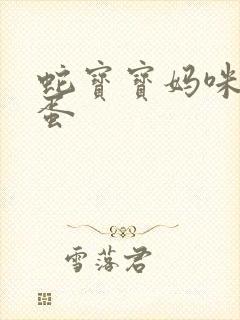 蛇寶寶妈咪
蛋
雪落君